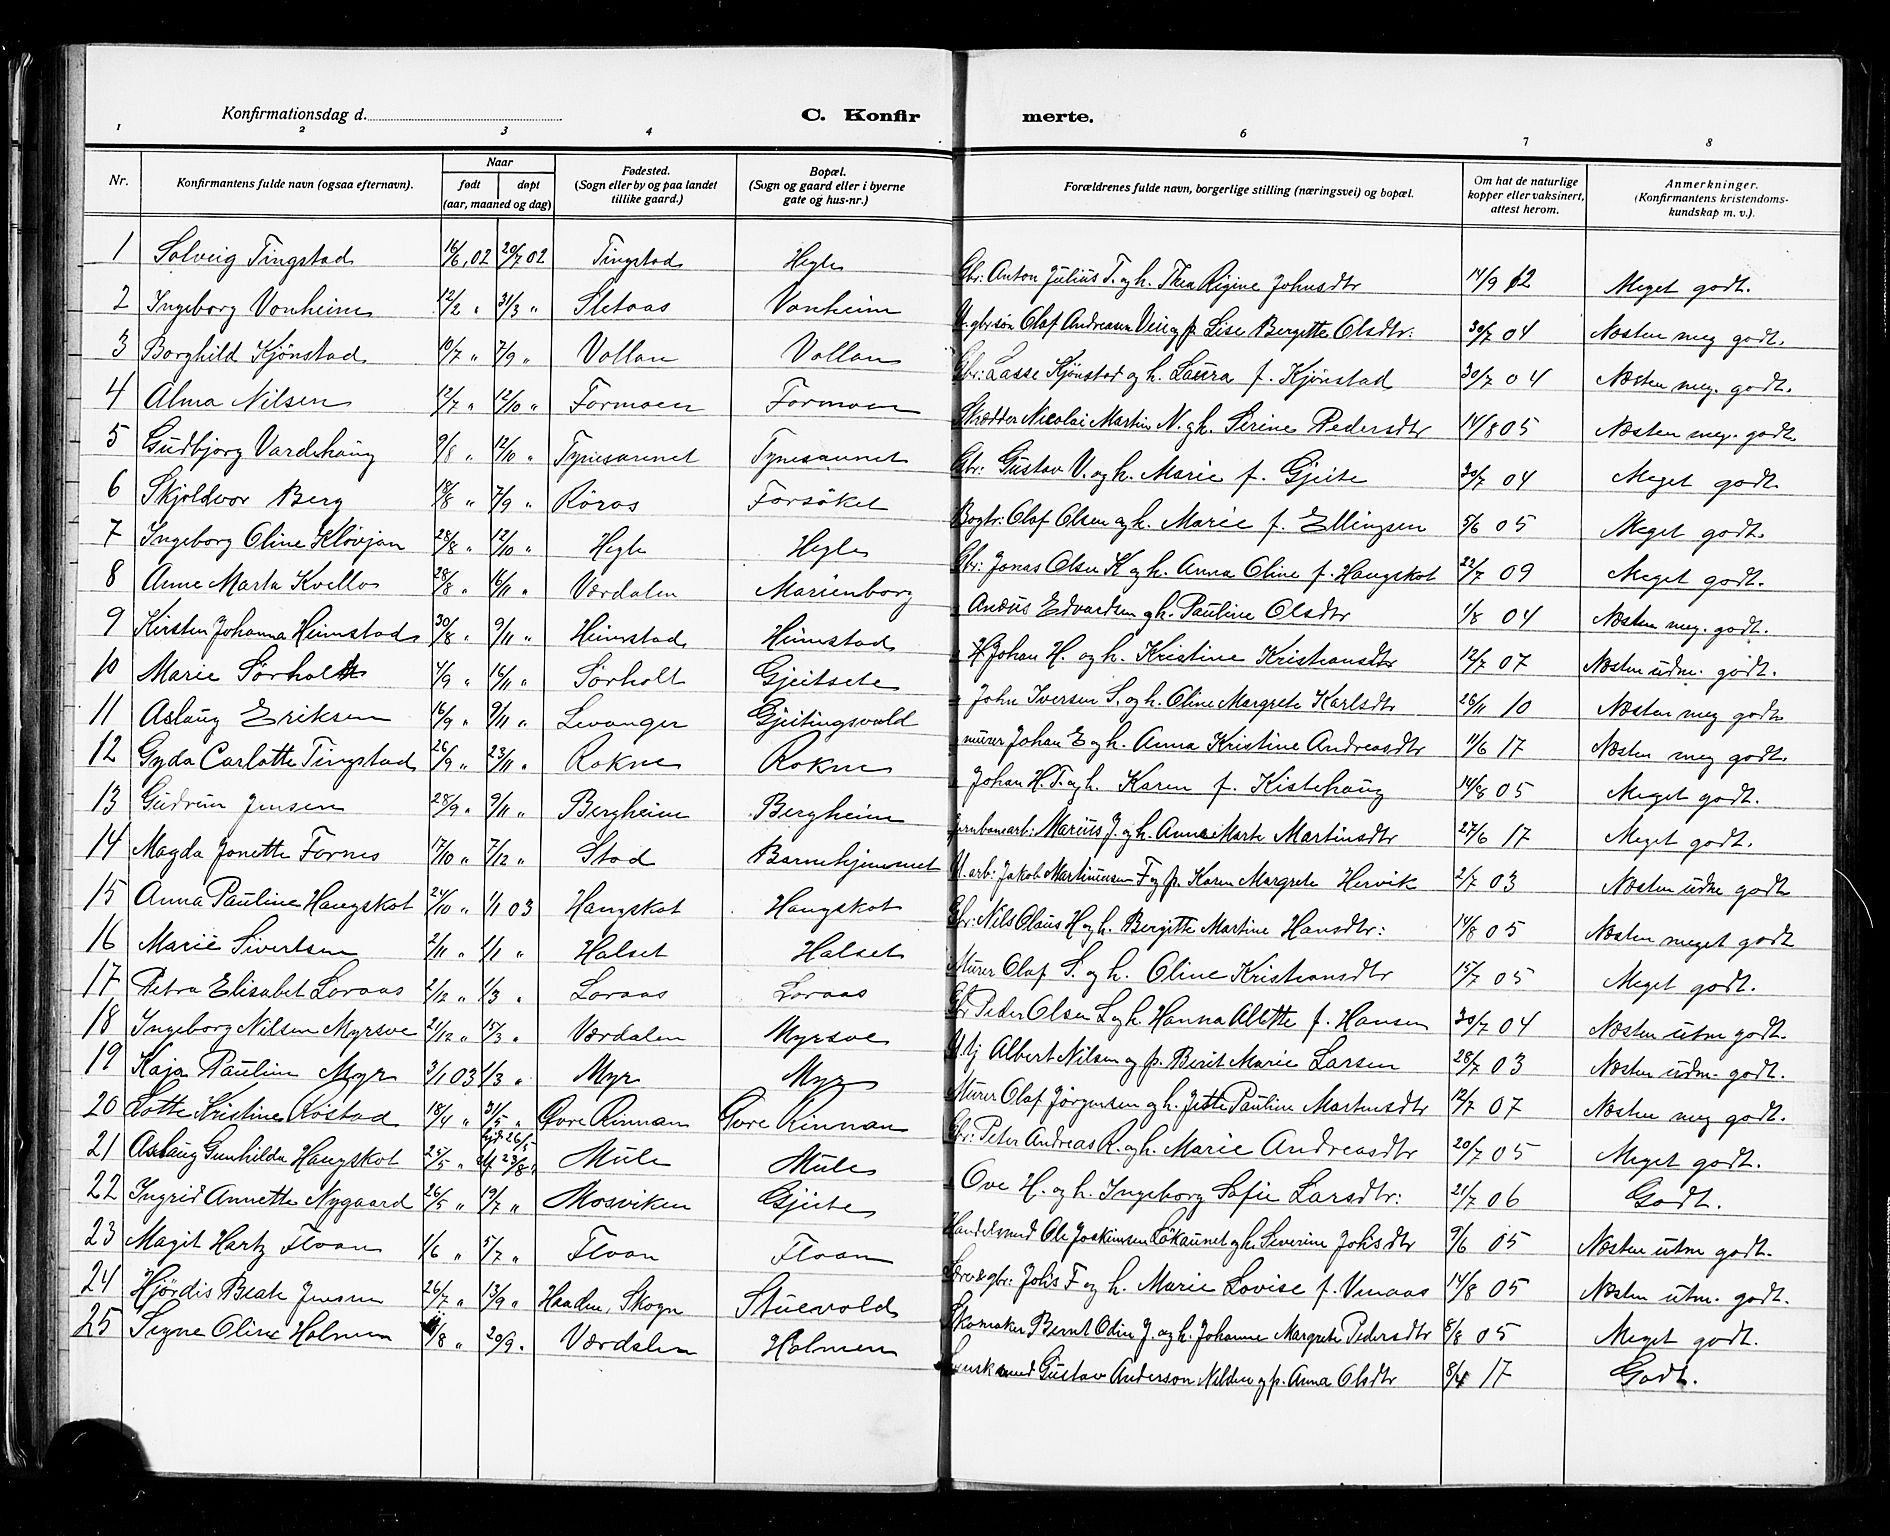 Konfirmationsdag d. C. Konfir merte.
1 2 3 4 6 7 8
Nr. Konfirmantens fulde navn (ogsaa efternavn). Naar født døpt (aar, maaned og dag) Fødested. (Sogn eller by og paa landet tillike gaard.) Bopæl. (Sogn og gaard eller i byerne gate og hus-nr.) Forældrenes fulde navn, borgerlige stilling (næringsvei) og bopæl. Om hat de naturlige kopper eller vaksinert, attest herom. Anmerkninger. (Konfirmantens kristendoms-kundskap m. v.).
1 Solveig Tingstad 16/6, 02 20/7 02 Tingstad Hegle Gbr: Anton Julius T. og h. Thea Regine Johnsdtr 14/9 12 Meget godt.
2 Ingeborg Vonheim 12/2 " 31/3 " Sletaas Vonheim U. gbrsøn Olaf Andreasen og p. Lise Bergitte Olsdtr: 30/7 04 Næsten meg godt.
3 Borghild Kjønstad 10/7 " 7/9 " Vollan Vollan Gbr: Lasse Kjønstad og h. Laura f. Kjønstad 30/7 04 Næsten meg. godt.
4 Alma Nilsen 12/7 " 12/10 " Formoen Formoen Skrædder Nicolai Martin N. og h. Serine Pedersdtr 14/8 05 Næsten meg. godt
5 Gudbjørg Vardehaug 9/8 " 12/10 " Tynesaunet Tynesaunet Gbr: Gustav V. og h. Marie f. Gjeite 30/7 04 Meget godt.
6 Skjoldvor Berg 18/8 " 7/9 " Röros Forsøket Bogtr: Olaf Olsen og h. Marie f. Ellingsen 5/6 05 Meget godt.
7 Ingeborg Oline Kløvjan 28/8 " 12/10 " Hegle Hegle Gbr: Jonas Olsen K og h. Anna Oline f. Haugskot 22/7 09 Meget godt.
8 Anne Marta Kvello 28/8 " 16/11 " Værdalen Marienborg " Anæus Edvardsen og h. Pauline Olsdtr 1/8 04 Næsten meg. godt.
9 Kirsten Johanna Heimstad 30/8 " 9/11 " Heimstad Heimstad " Johan H. og h. Kristine Kristiansdtr 12/7 07 Næsten udm. godt.
10 Marie Sørholt 4/9 " 16/11 " Sørholt Gjeitsete " John Iversen S. og h. Oline Margrete Karlsdtr 26/11 10 Næsten meg godt
11 Aslaug Eriksen 16/9 " 9/11 " Levanger Gjeitingsvold murer Johan E og h. Anna Kristine Andreasdtr 11/6 17 Næsten meg godt.
12 Gyda Carlotte Tingstad 26/9 " 23/11 " Rokne Rokne " Johan H. T. og h. Karen f. Kistehaug 14/8 05 Meget godt.
13 Gudrun Jensen 28/9 " 9/11 " Bergheim Bergheim Jernbanearb: Marius J. og h. Anna Marta Martinsdtr 27/6 17 Meget godt.
14 Magda Jonette Fornes 17/10 " 7/12 " Stod Barnehjemmet U. arb: Jakob Martinusen F og p. Karen Margrete Hervik 2/7 03 Næsten udm godt
15 Anna Pauline Haugskot 24/10 " 1/1 03 Haugskot Haugskot Gbr: Nils Olaus H og h. Bergitte Martine Hansdtr: 14/8 05 Næsten meget godt
16 Marie Sivertsen 2/11 " 1/1 " Halset Halset Murer Olaf S. og h. Oline Kristiansdtr 15/7 05 Meget godt.
17 Petra Elisabet Loraas 2/12 " 1/3 " Loraas Loraas Gbr Peder Olsen L og h. Hanna Alette f. Hansen 30/7 04 Næsten utm godt.
18 Ingeborg Nilsen Myrsve 21/12 " 15/3 " Værdalen Myrsve Albert Nilsen og p. Berit Marie Larsen 28/7 03 Næsten udm. godt.
19 Kaja Pauline Myr 3/1 03 1/3 " Myr Myr Murer Olaf Jørgensen og h. Jette Pauline Martinsdtr 12/7 07 Næsten meg godt.
20 Lotte Kristine Røstad 18/4 " 31/5 " Gore Rinnan Gore Rinnan Gbr: Peter Andreas R. og h. Marie Andreasdtr 20/7 05 Meget godt.
21 Aslaug Gunhilda Haugskot 25/5 " 26/5 23/8 " Mule Mule " Ove H. og h. Ingeborg Sofie Larsdtr: 21/7 06 Godt.
22 Ingrid Annette Nygaard 26/5 " 19/7 " Mosviken Gjeite Handelsmd Ole Joakimsen Lökaunet og h. Severine Johsdtr 9/6 05 Næsten utm godt.
23 Magit Hartz Floan 1/6 " 5/7 " Floan Floan Lærer & gbr: Johs F og h. Marie Lovise f. Vinaas 14/8 05 Næsten utm. godt.
24 Hjørdis Beate Jensen 26/7 " 13/9 " Haaden, Skogn Stuevold Skomaker Bernt Odin J. og h. Johanne Margrete Pedersdtr 8/8 05 Meget godt.
25 Signe Oline Holmen /8 " 20/9 " Værdalen Holmen Gustav Anderson og p. Anna Olsdtr 8/4 17 Godt.